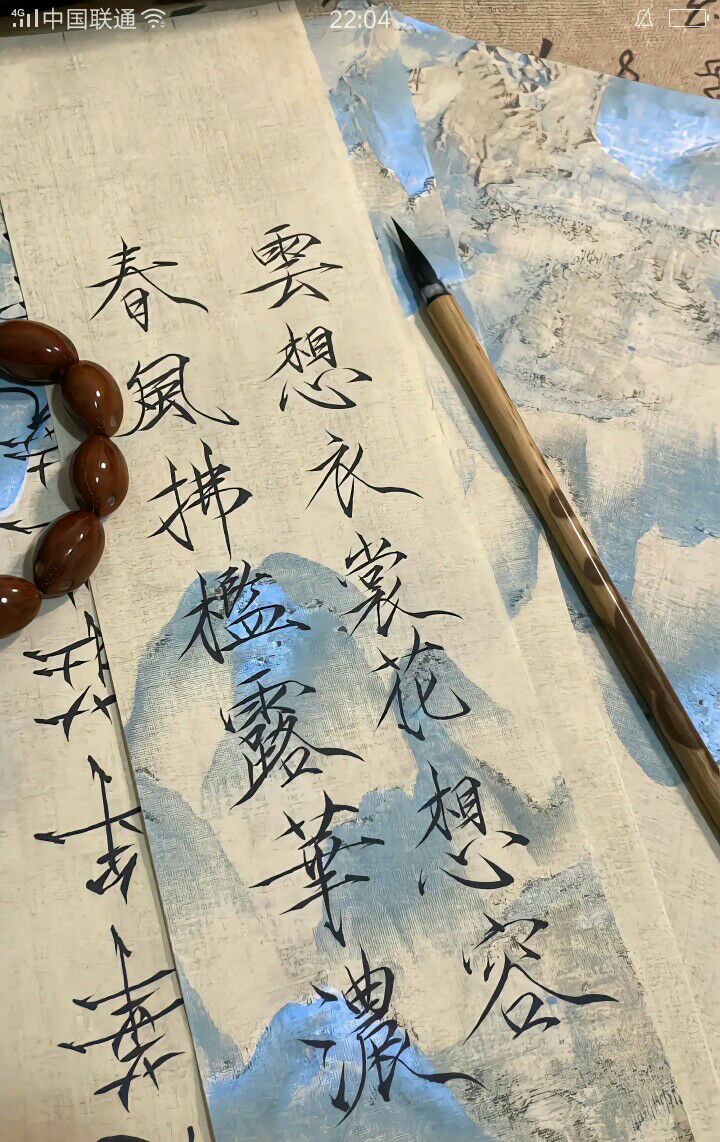 中国联通
22:04
雲想衣裳花想容
春風拂檻露華濃